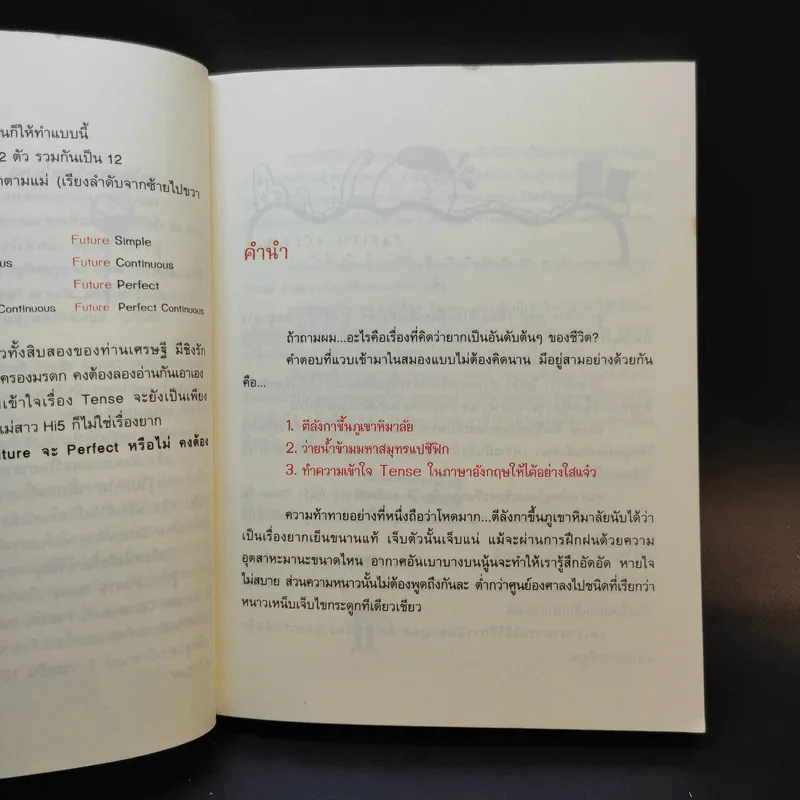 นก็ให้ทำแบบนี้
2 ตัว รวมกันเป็น 12
ตามแม่ (เรียงลำดับจากซ้ายไปขวา
Future Simple
us Future Continuous
Future Perfect
Continuous Future Perfect Continuous
วทั้งสิบสองของท่านเศรษฐี มีชิงรัก
ครองมรดก คงต้องลองอ่านกันเอาเอง
ข้าใจเรื่อง Tense จะยังเป็นเพียง
แม่สาว Hi5 ก็ไม่ใช่เรื่องยาก
uture จะ Perfect หรือไม่ คงต้อง
คำนำ
ถ้าถามผม...อะไรคือเรื่องที่คิดว่ายากเป็นอันดับต้นๆ ของชีวิต?
คำตอบที่แวบเข้ามาในสมองแบบไม่ต้องคิดนาน มีอยู่สามอย่างด้วยกัน
คือ...
1. ตีลังกาขึ้นภูเขาหิมาลัย
2. ว่ายน้ำข้ามมหาสมุทรแปซิฟิก
3. ทำความเข้าใจ Tense ในภาษาอังกฤษให้ได้อย่างใส่แจ๋ว
ความท้าทายอย่างที่หนึ่งถือว่าโหดมาก...ตีลังกาขึ้นภูเขาหิมาลัยนับได้ว่า
เป็นเรื่องยากเย็นขนานแท้ เจ็บตัวนั้นเจ็บแน่ แม้จะผ่านการฝึกฝนด้วยความ
อุตสาหะมานะขนาดไหน อากาศอันเบาบางบนนู้นจะทำให้เรารู้สึกอัดอัด หายใจ
ไม่สบาย ส่วนความหนาวนั้นไม่ต้องพูดถึงกันละ ต่ำกว่าศูนย์องศาลงไปชนิดที่เรียกว่า
หนาวเหน็บเจ็บไขกระดูกทีเดียวเชียว